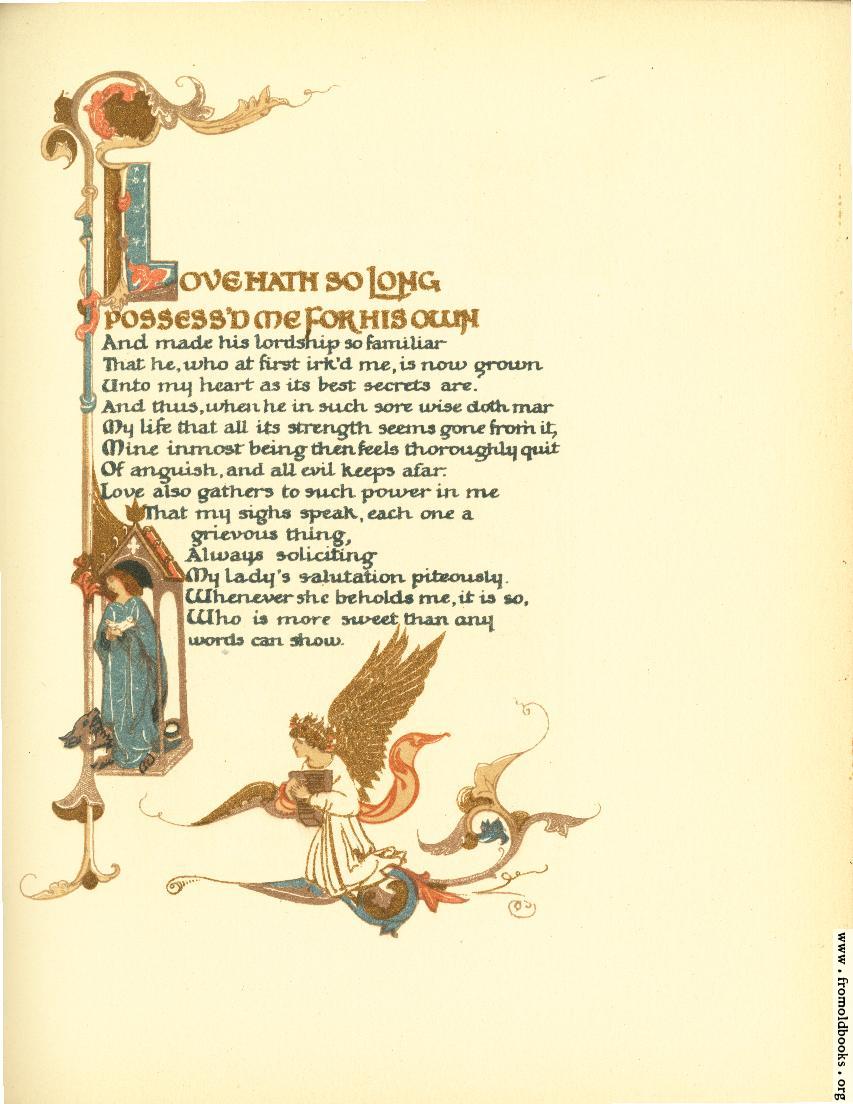 LOVE HATH SO LONG
POSSESS'D ME FOR HIS OWN
And made his lordship so familiar
That he, who at first irk'd me, is now grown
Unto my heart as its best secrets are.
And thus, when he in such sore wise doth mar
My life that all its strength seems gone from it,
Mine inmost being then feels thoroughly quit
Of anguish, and all evil keeps afar:
Love also gathers to such power in me
That my sighs speak, each one a
grievous thing,
Always soliciting
My lady's salutation piteously.
Whenever she beholds me, it is so,
Who is more sweet than any
words can show.
www.fromoldbooks.org